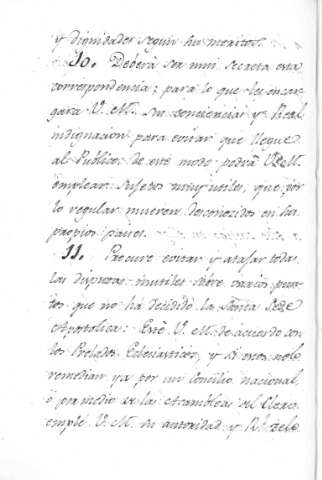 y dignidades segun sus meritos.
10. Deberá ser mui secreta esta
correspondencia; para lo que les encar
gara V. M. su conciencia y Real
indignacion para evitar que llegue
al Publico; de este modo podrá V. M.
emplear Sujetos muy utiles, que por
lo regular mueren desconocidos en sus
propios paises.
11. Procure evitar y atajar todas
las disputas inutiles sobre varios pun
tos que no ha decidido la Santa Sede
Apostolica: Esté V. M. de acuerdo con
los Prelados Eclesiasticos, y si estos no lo
remedian ya por un Concilio nacional,
ó por medio de las Asambleas del Clero
emplé V. M. su autoridad y Rl. zelo